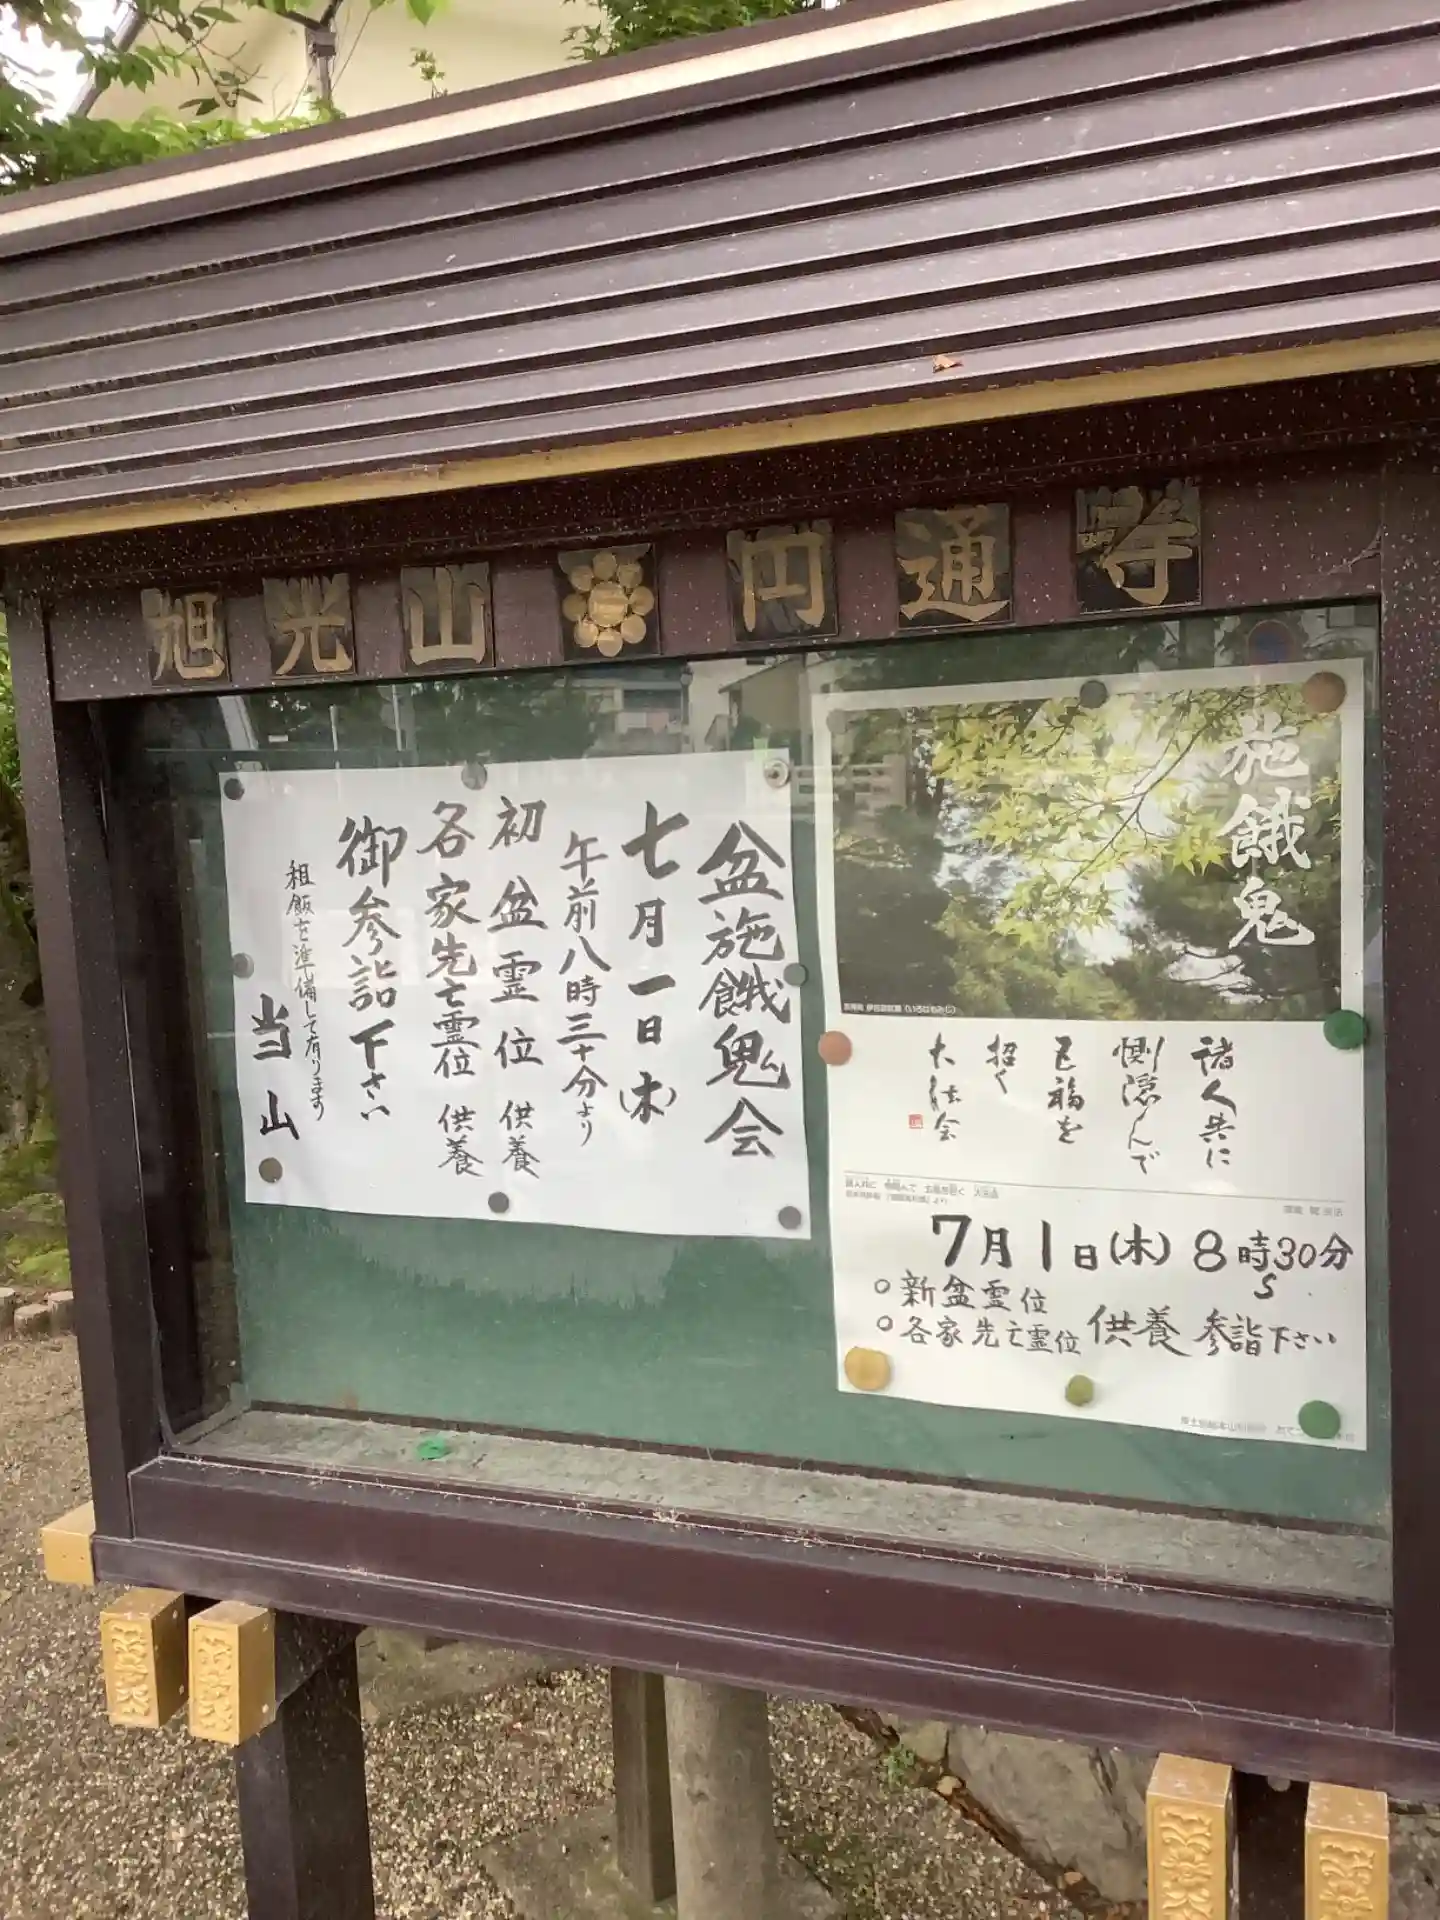 旭光山 円通寺
盆施餓鬼会
七月一日(木)
午前八時三十分より
初盆霊位 供養
各家先亡霊位 供養
御参詣下さい
粗飯を準備して有ります
当山
施餓鬼
諸人共に
惻隠んで
五福を
招く
大法会
7月1日(木) 8時30分
S
○新盆霊位
○各家先亡霊位 供養 参詣下さい